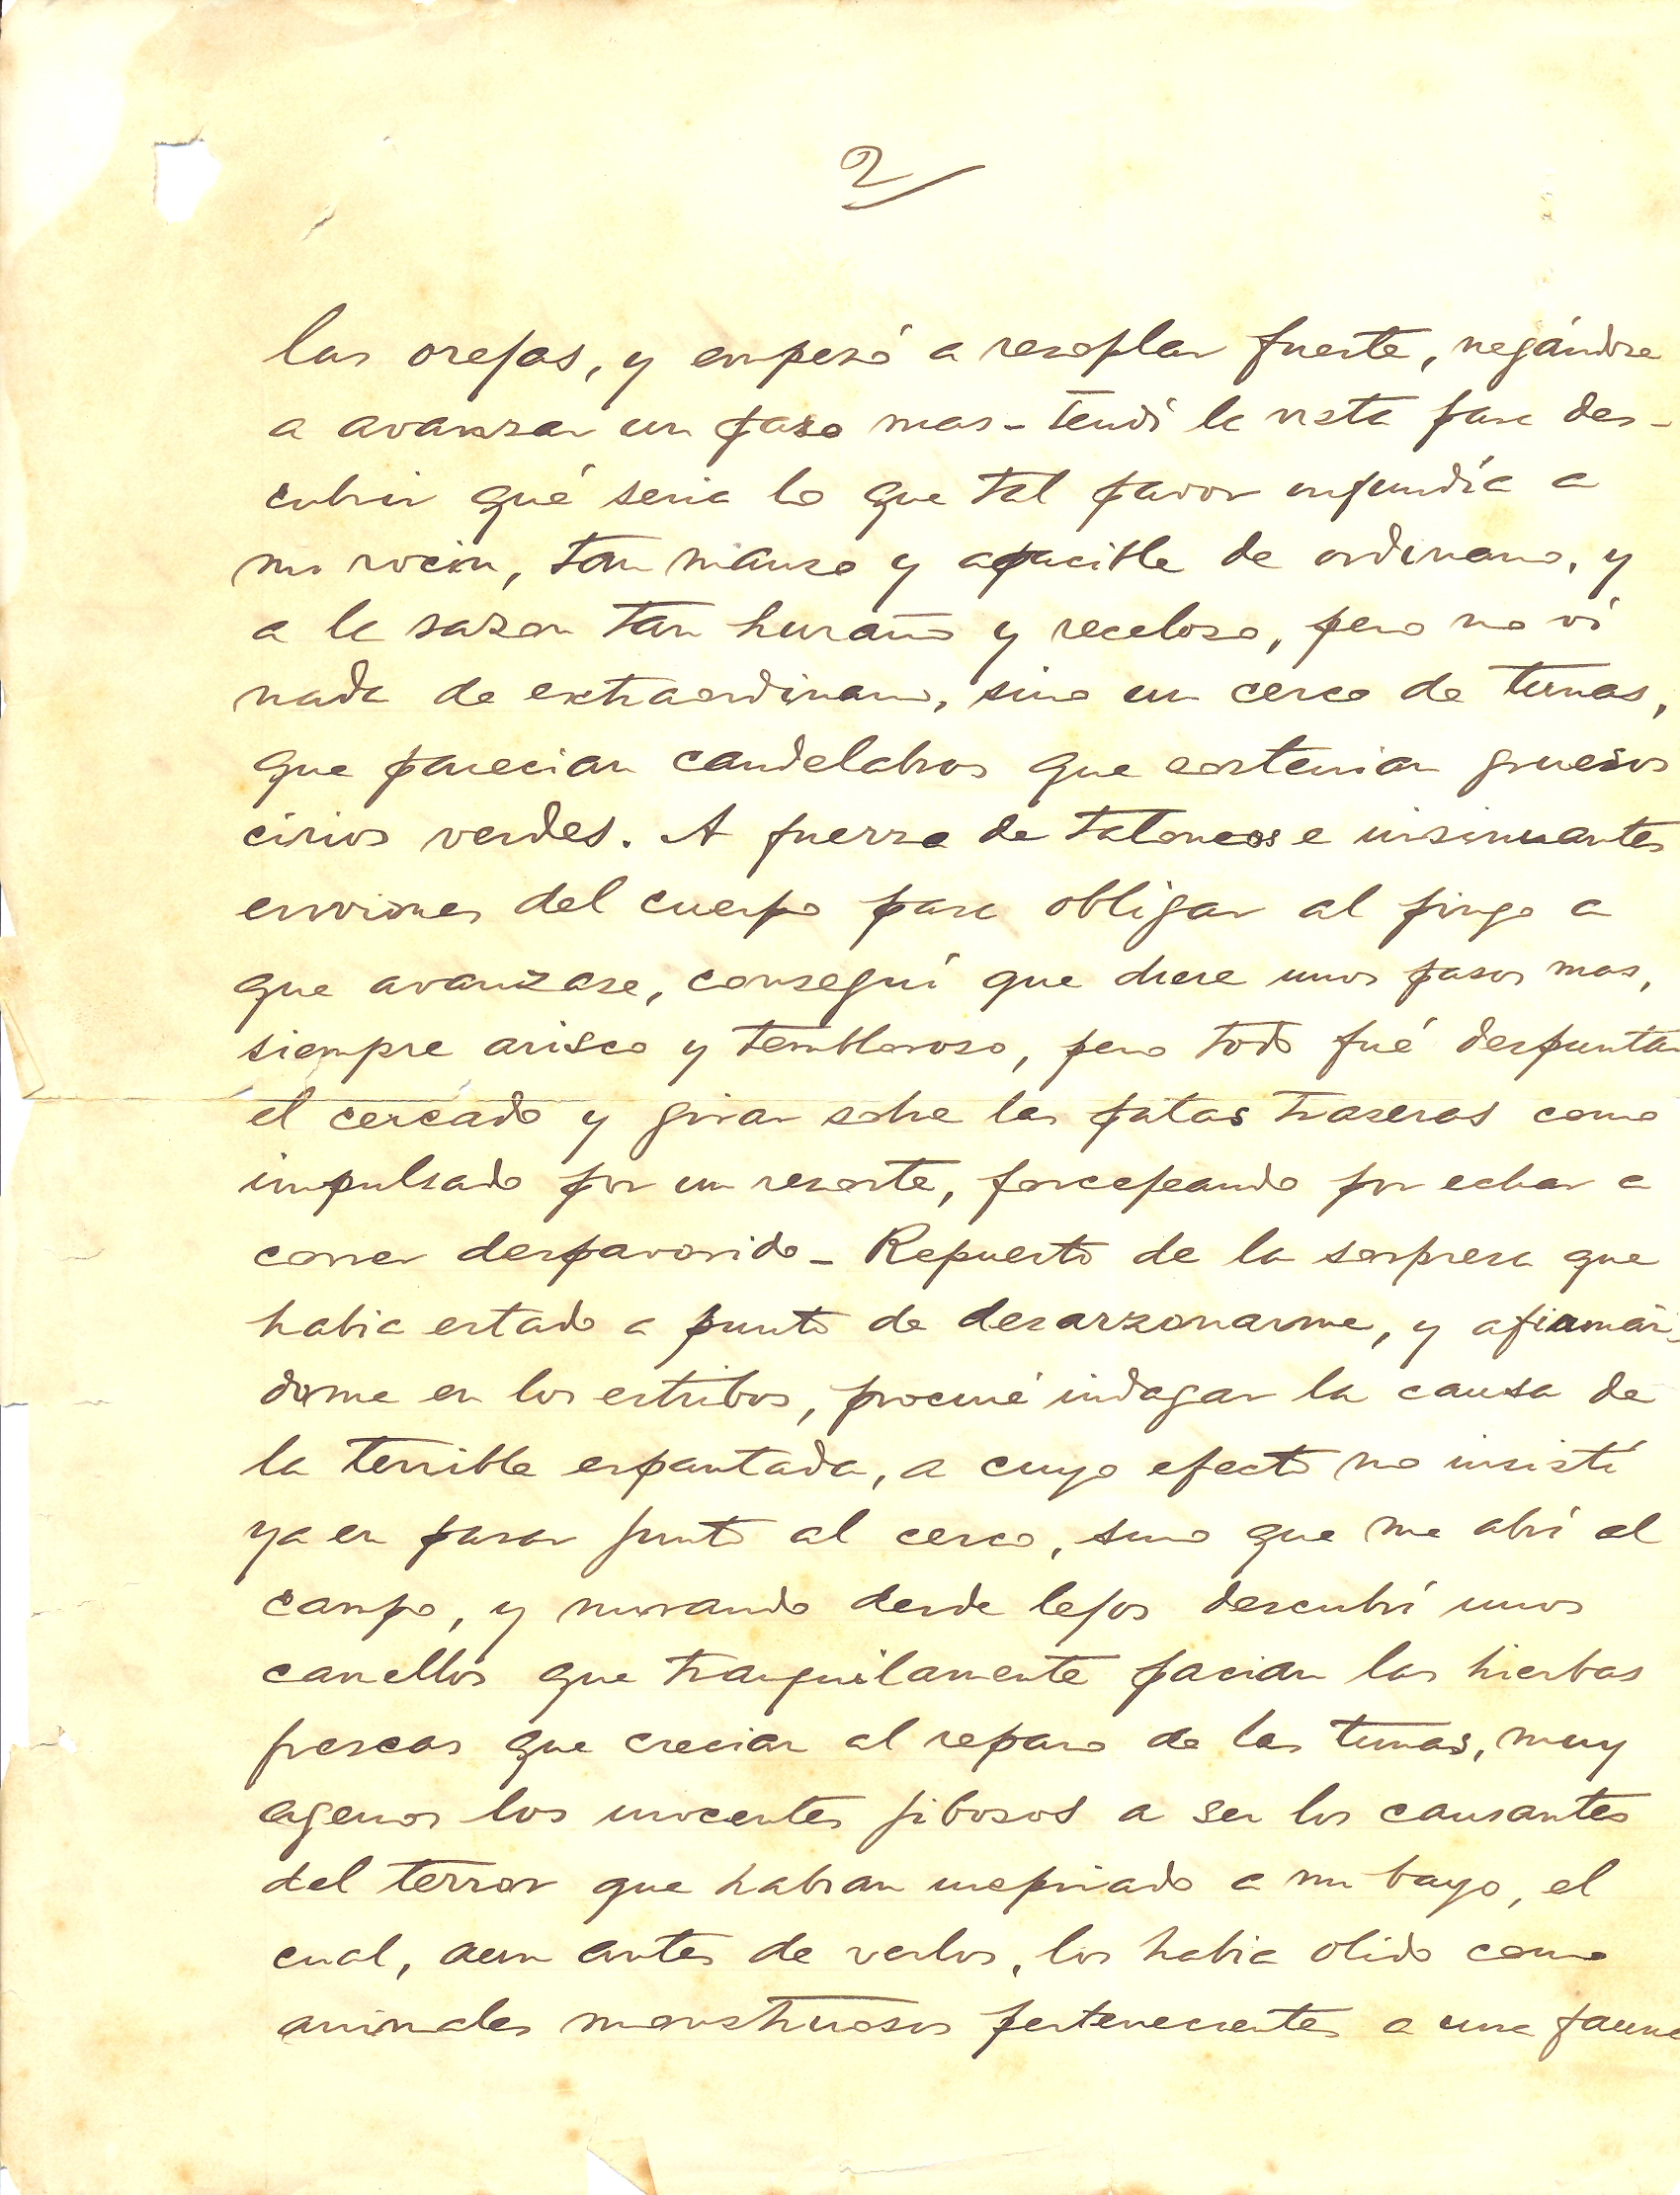 2/
las orejas, y empesó a resoplar fuerte, negándose
a avanzar un paso mas - Tendí la vista para des-
cubrir qué seria lo que tal pavor infundía a
mi rocin, tan manso y apacible de ordinario, y
a la sazon tan huraño y receloso, pero no ví
nada de extraordinario, sino un cerco de tunas,
que parecian candelabros que sostenian gruesos
cirios verdes. A fuerza de taloneos e insinuantes
enviones del cuerpo para obligar al pingo a
que avanzase, conseguí que diese unos pasos mas,
siempre arisco y tembloroso, pero todo fué despuntar
el cercado y girar sobre las patas traseras como
impulsado por un resorte, forcejeando por echar a
correr despavorido - Repuesto de la sorpresa que
habia estado a punto de desarzonarme, y afirmán-
dome en los estribos, procuré indagar la causa de
la terrible espantada, a cuyo efecto no insistí
ya en pasar junto al cerco, sino que me abrí al
campo, y mirando desde lejos descubrí unos
camellos que tranquilamente pacian las hierbas
frescas que crecian al reparo de las tunas, muy
agenos los inocentes jibosos a ser los causantes
del terror que habian inspirado a mi bayo, el
cual, aun antes de verlos, los habia olido como
animales monstruosos pertenecientes a una fauna